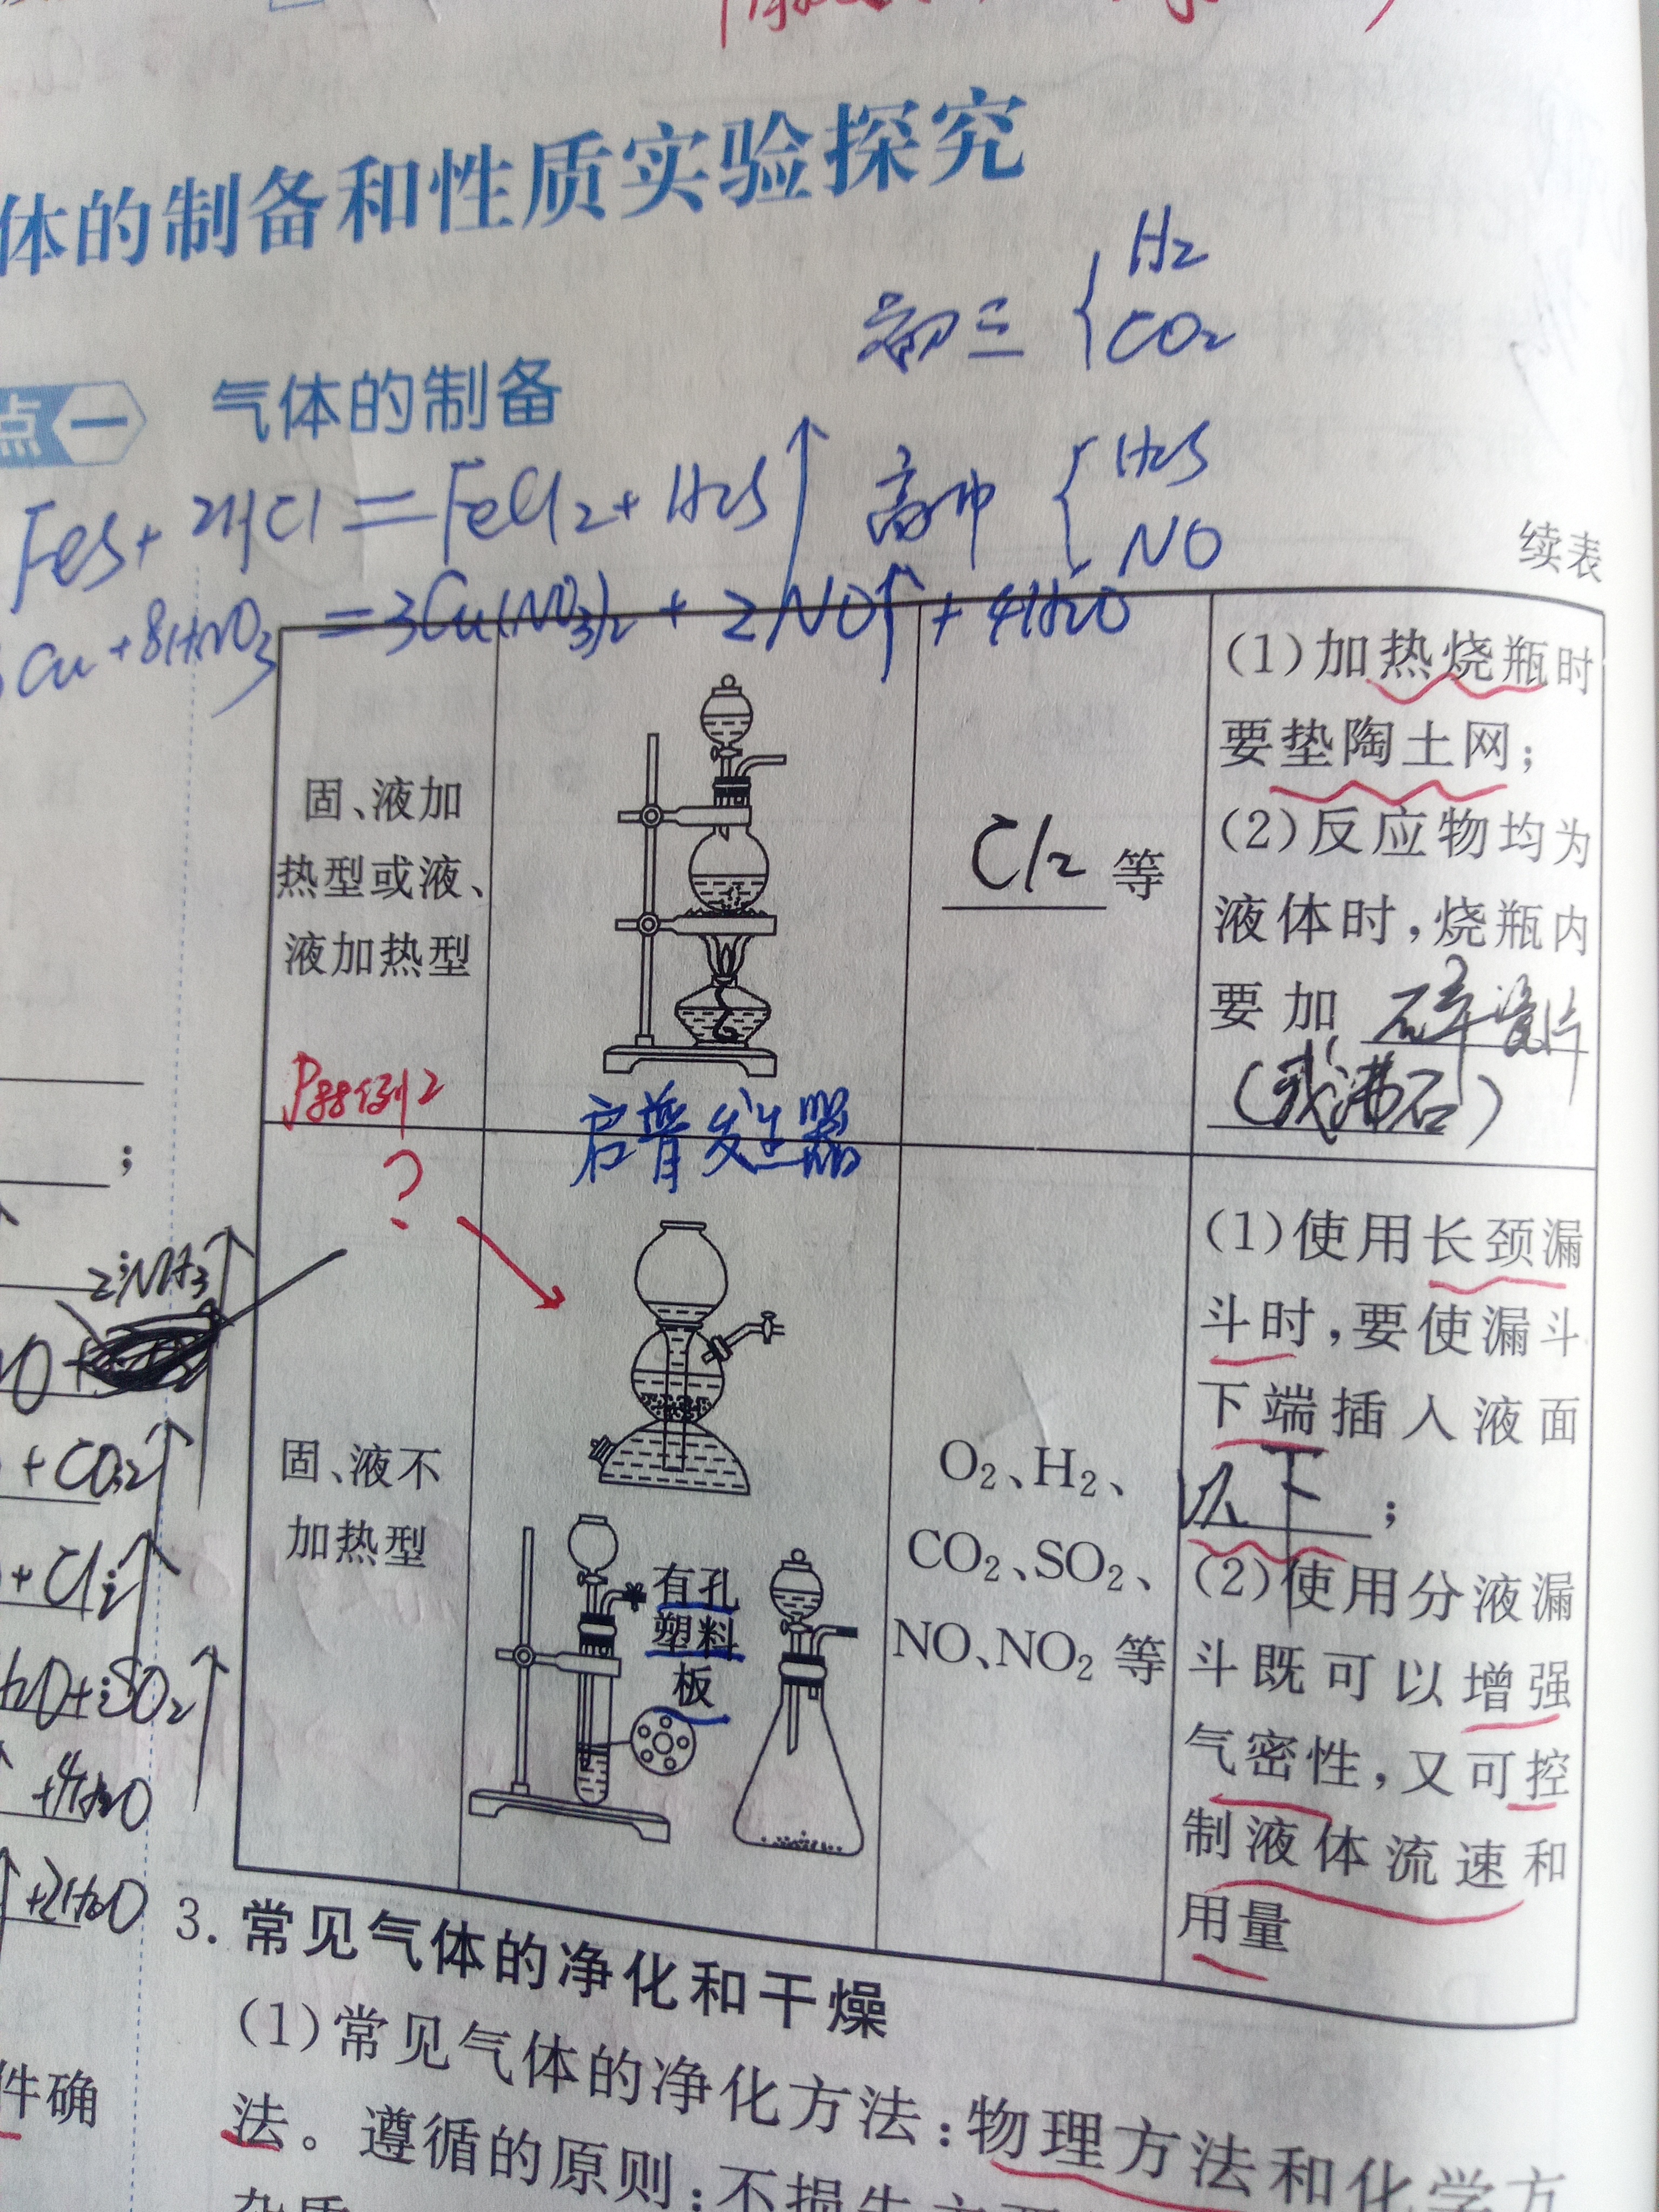 体的制备和性质实验探究
初三 { H₂
CO₂
点一 气体的制备
FeS + 2HCl = FeCl₂ + H₂S↑ 高中 { H₂S
NO
续表
Cu + 8HNO₃ = 3Cu(NO₃)₂ + 2NO↑ + 4H₂O
固、液加
热型或液、
液加热型
P88例2
Cl₂ 等
(1)加热烧瓶时
要垫陶土网;
(2)反应物均为
液体时,烧瓶内
要加 碎瓷片
(或沸石)
启普发生器
?
固、液不
加热型
有孔
塑料
板
O₂、H₂、
CO₂、SO₂、
NO、NO₂ 等
(1)使用长颈漏
斗时,要使漏斗
下端插入液面
以下;
(2)使用分液漏
斗既可以增强
气密性,又可控
制液体流速和
用量
;
2NH₃↑
+CO₂↑
+4H₂O
+2H₂O
件确
3.常见气体的净化和干燥
(1)常见气体的净化方法:物理方法和化学方
法。遵循的原则:不损失主要